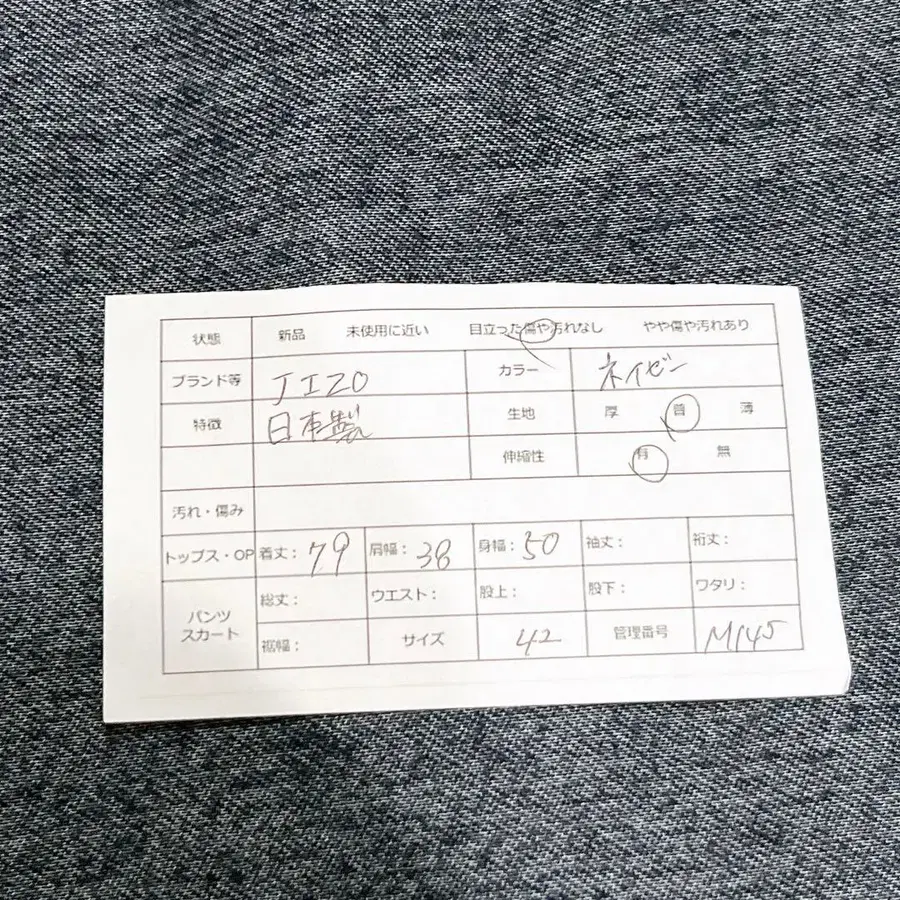 状態 新品 未使用に近い 目立った傷や汚れなし やや傷や汚れあり
ブランド等 JIZO カラー ネイビー
特徴 日本製 生地 厚 普 薄
伸縮性 有 無
汚れ・傷み
トップス・OP 着丈: 79 肩幅: 38 身幅: 50 袖丈: 裄丈:
パンツ スカート 総丈: ウエスト: 股上: 股下: ワタリ:
裾幅: サイズ 42 管理番号 M145